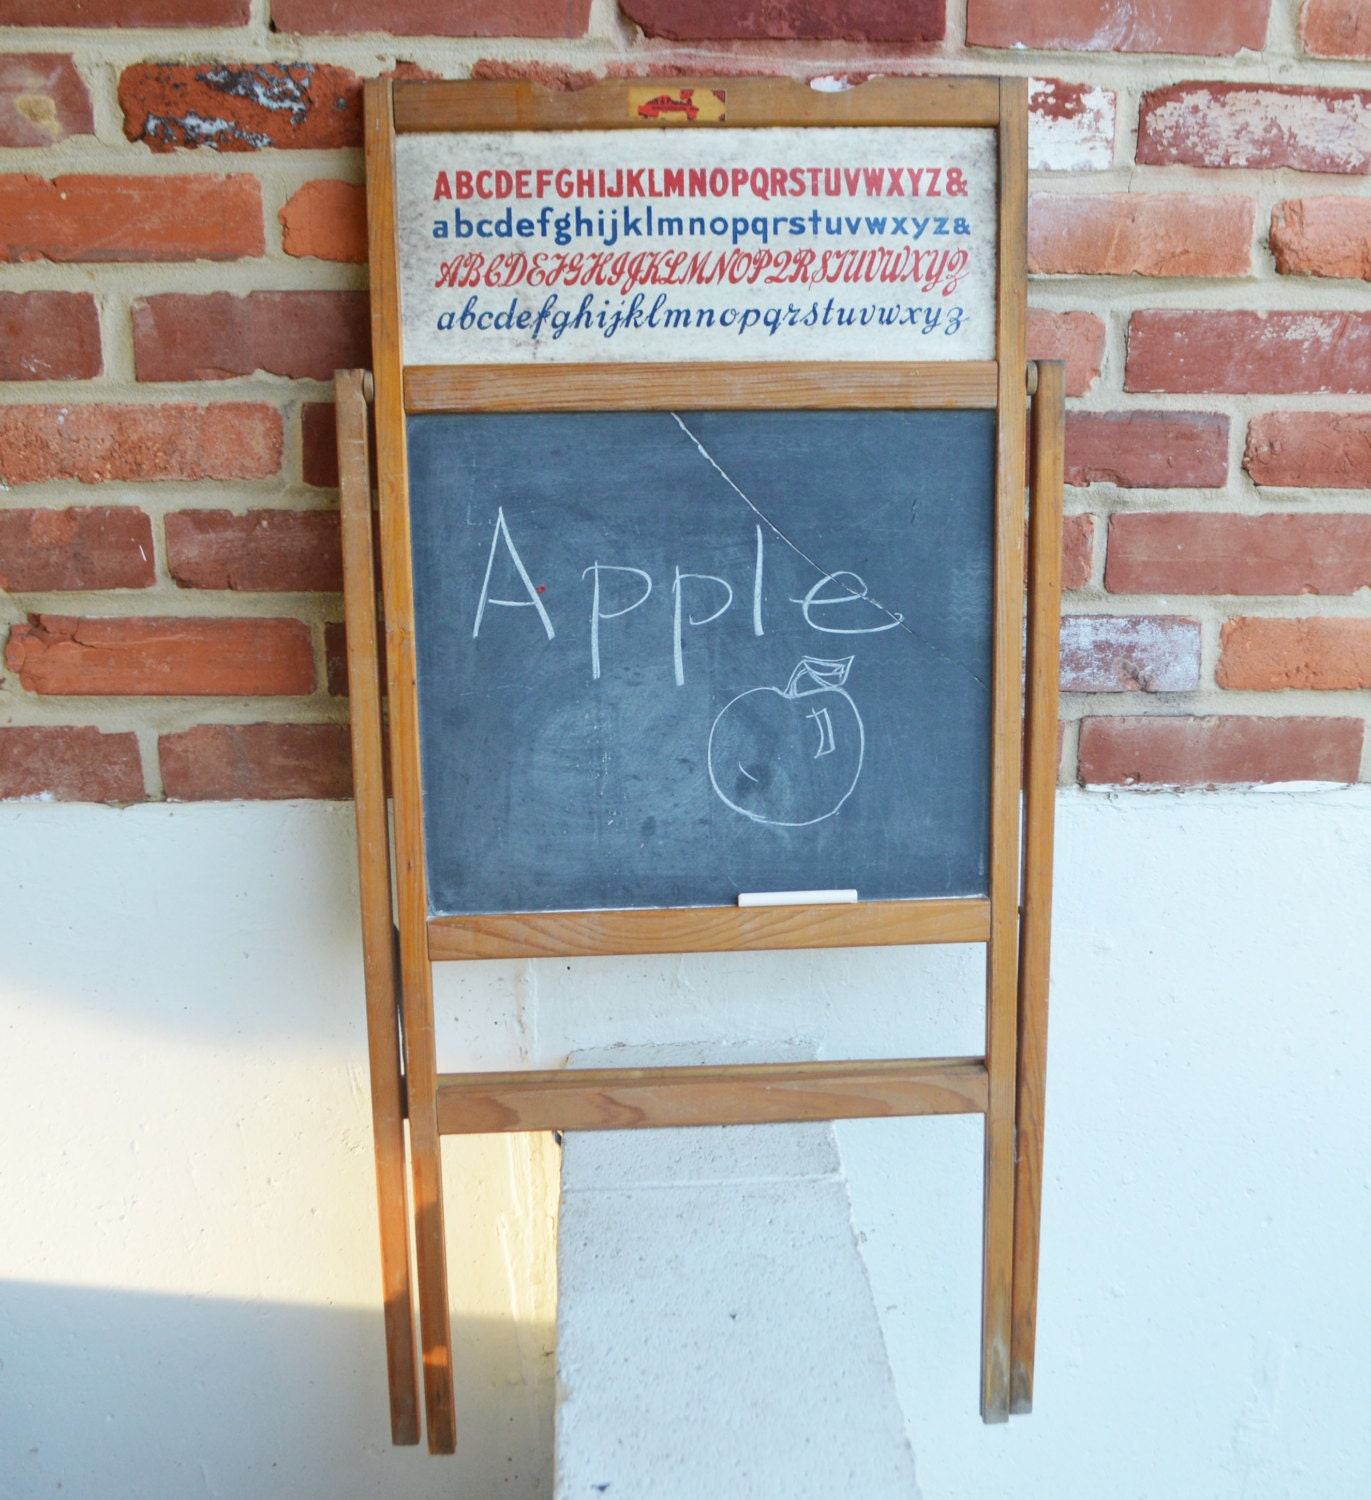 ABCDEFGHIJKLMNOPQRSTUVWXYZ&
abcdefghijklmnopqrstuvwxyz&
ABCDEFGHIJKLMNOPQRSTUVWXYZ
abcdefghijklmnopqrstuvwxyz
Apple